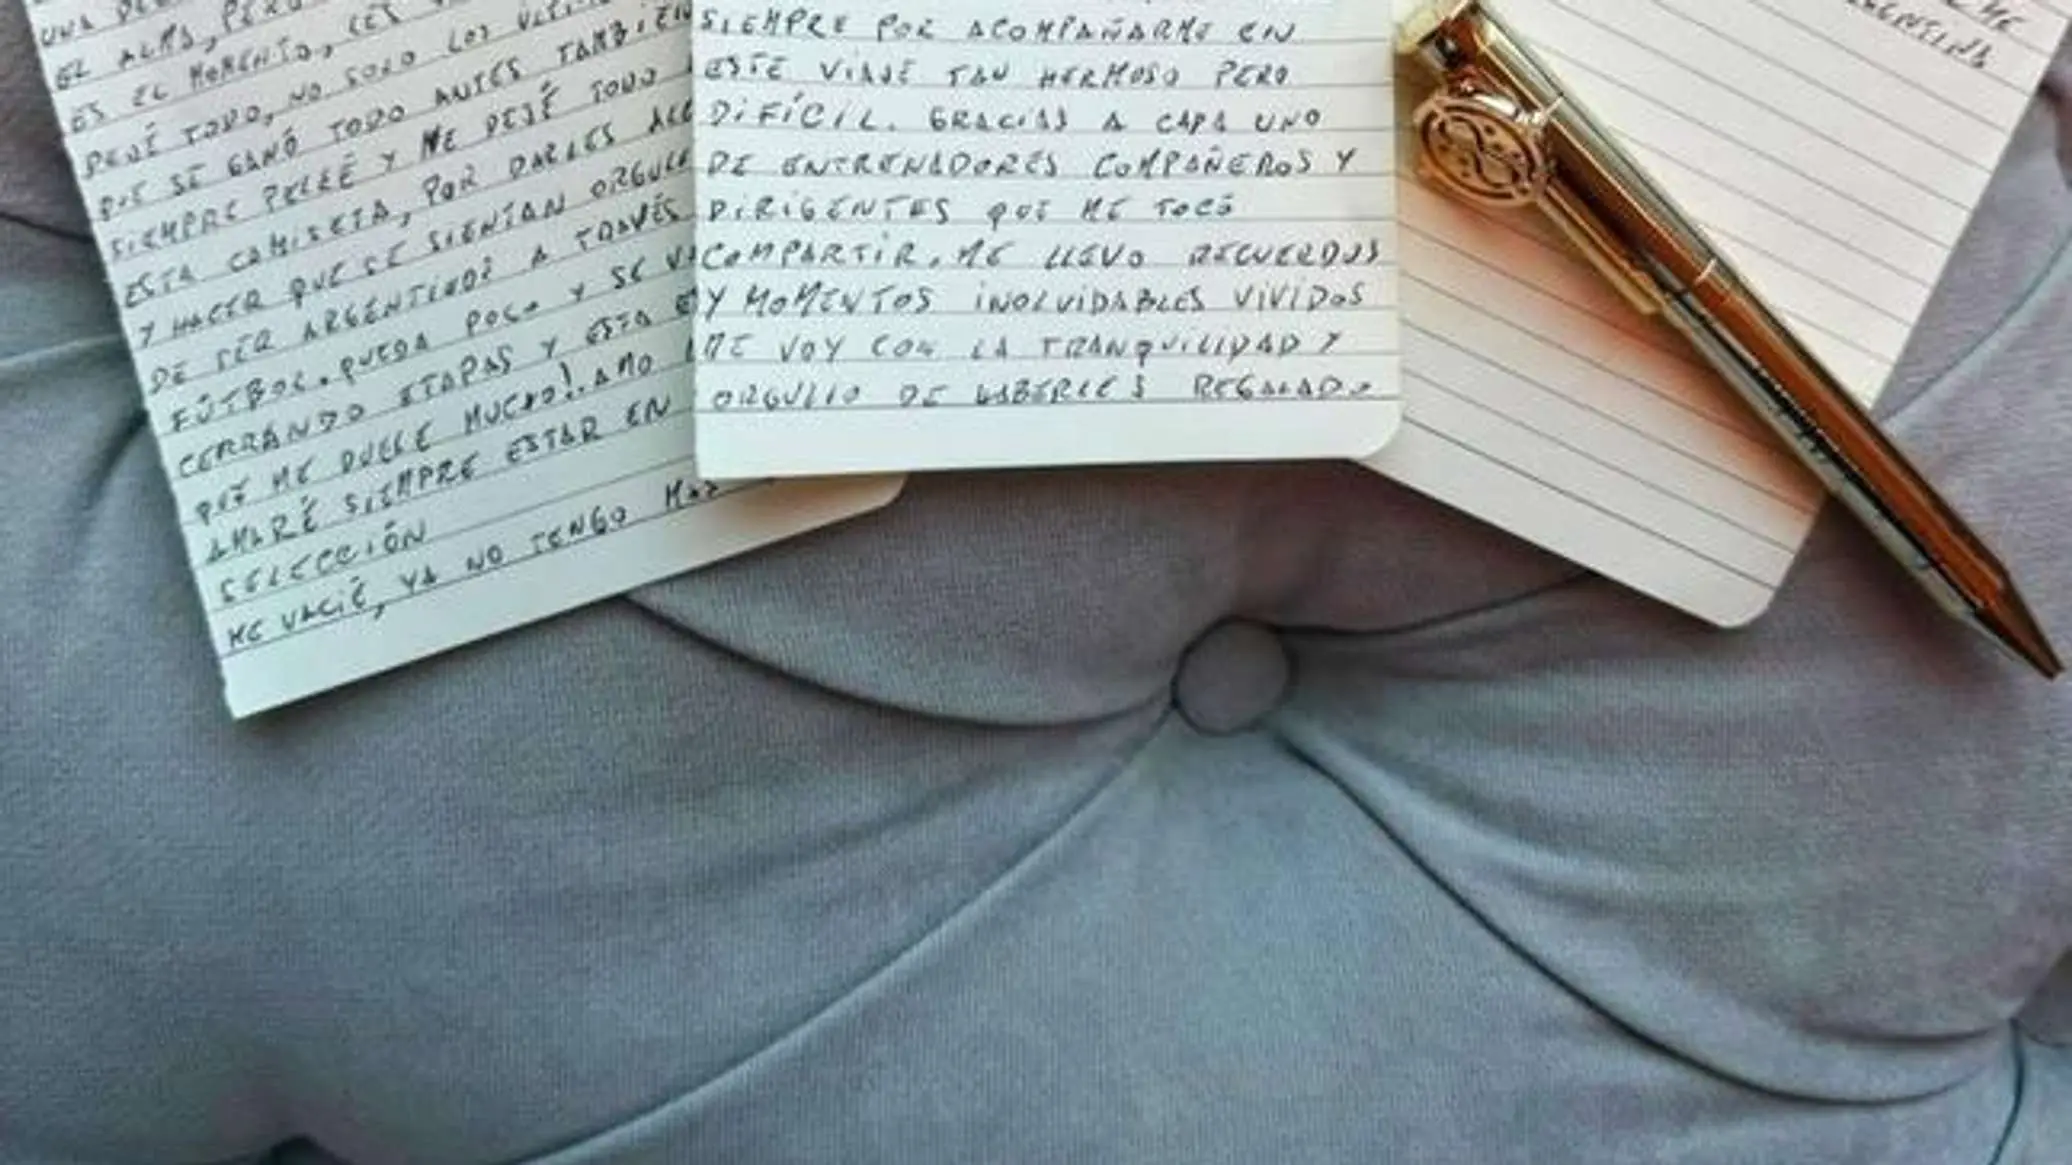 UNA
EL ALMA, PERO
ES EL MOMENTO, LES
DEJÉ TODO, NO SOLO LOS
QUE SE GANÓ TODO ANTES TAMBIÉN
SIEMPRE PELEÉ Y ME DEJÉ TODO
ESTA CAMISETA, POR DARLES
Y HACER QUE SE SIENTAN
DE SER ARGENTINOS A TRAVÉS
FÚTBOL. QUEDA POCO Y SE
CERRANDO ETAPAS Y ESTA
QUE ME DUELE MUCHO!. AMO
AMARÉ SIEMPRE ESTAR EN
SELECCIÓN
ME VACIÉ, YA NO TENGO
SIEMPRE POR ACOMPAÑARME EN
ESTE VIAJE TAN HERMOSO PERO
DIFÍCIL. GRACIAS A CADA UNO
DE ENTRENADORES COMPAÑEROS Y
DIRIGENTES QUE ME TOCÓ
COMPARTIR. ME LLEVO RECUERDOS
Y MOMENTOS INOLVIDABLES VIVIDOS
ME VOY CON LA TRANQUILIDAD Y
ORGULLO DE HABERLES REGALADO
ME